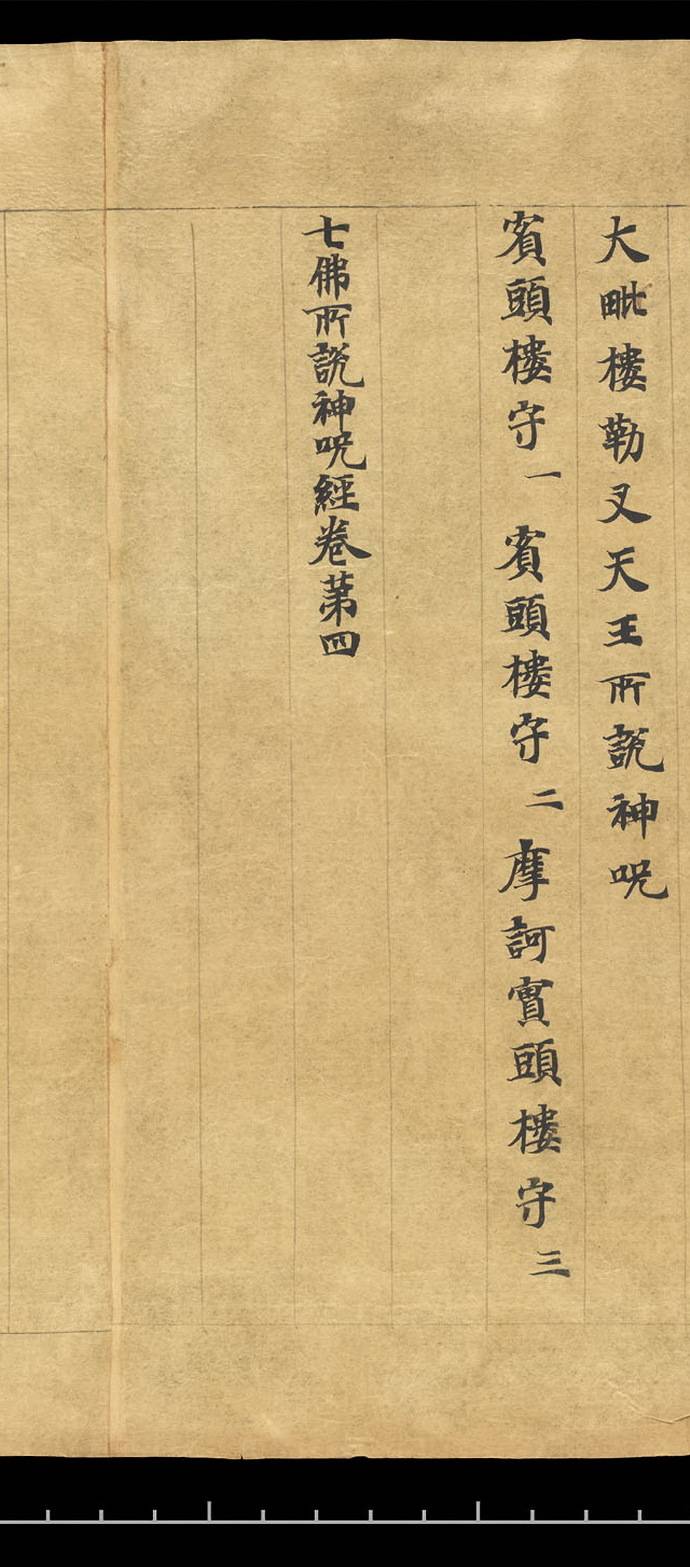 大毗樓勒叉天王所說神呪
賓頭樓守一 賓頭樓守二 摩訶賓頭樓守三
七佛所說神呪經卷第四